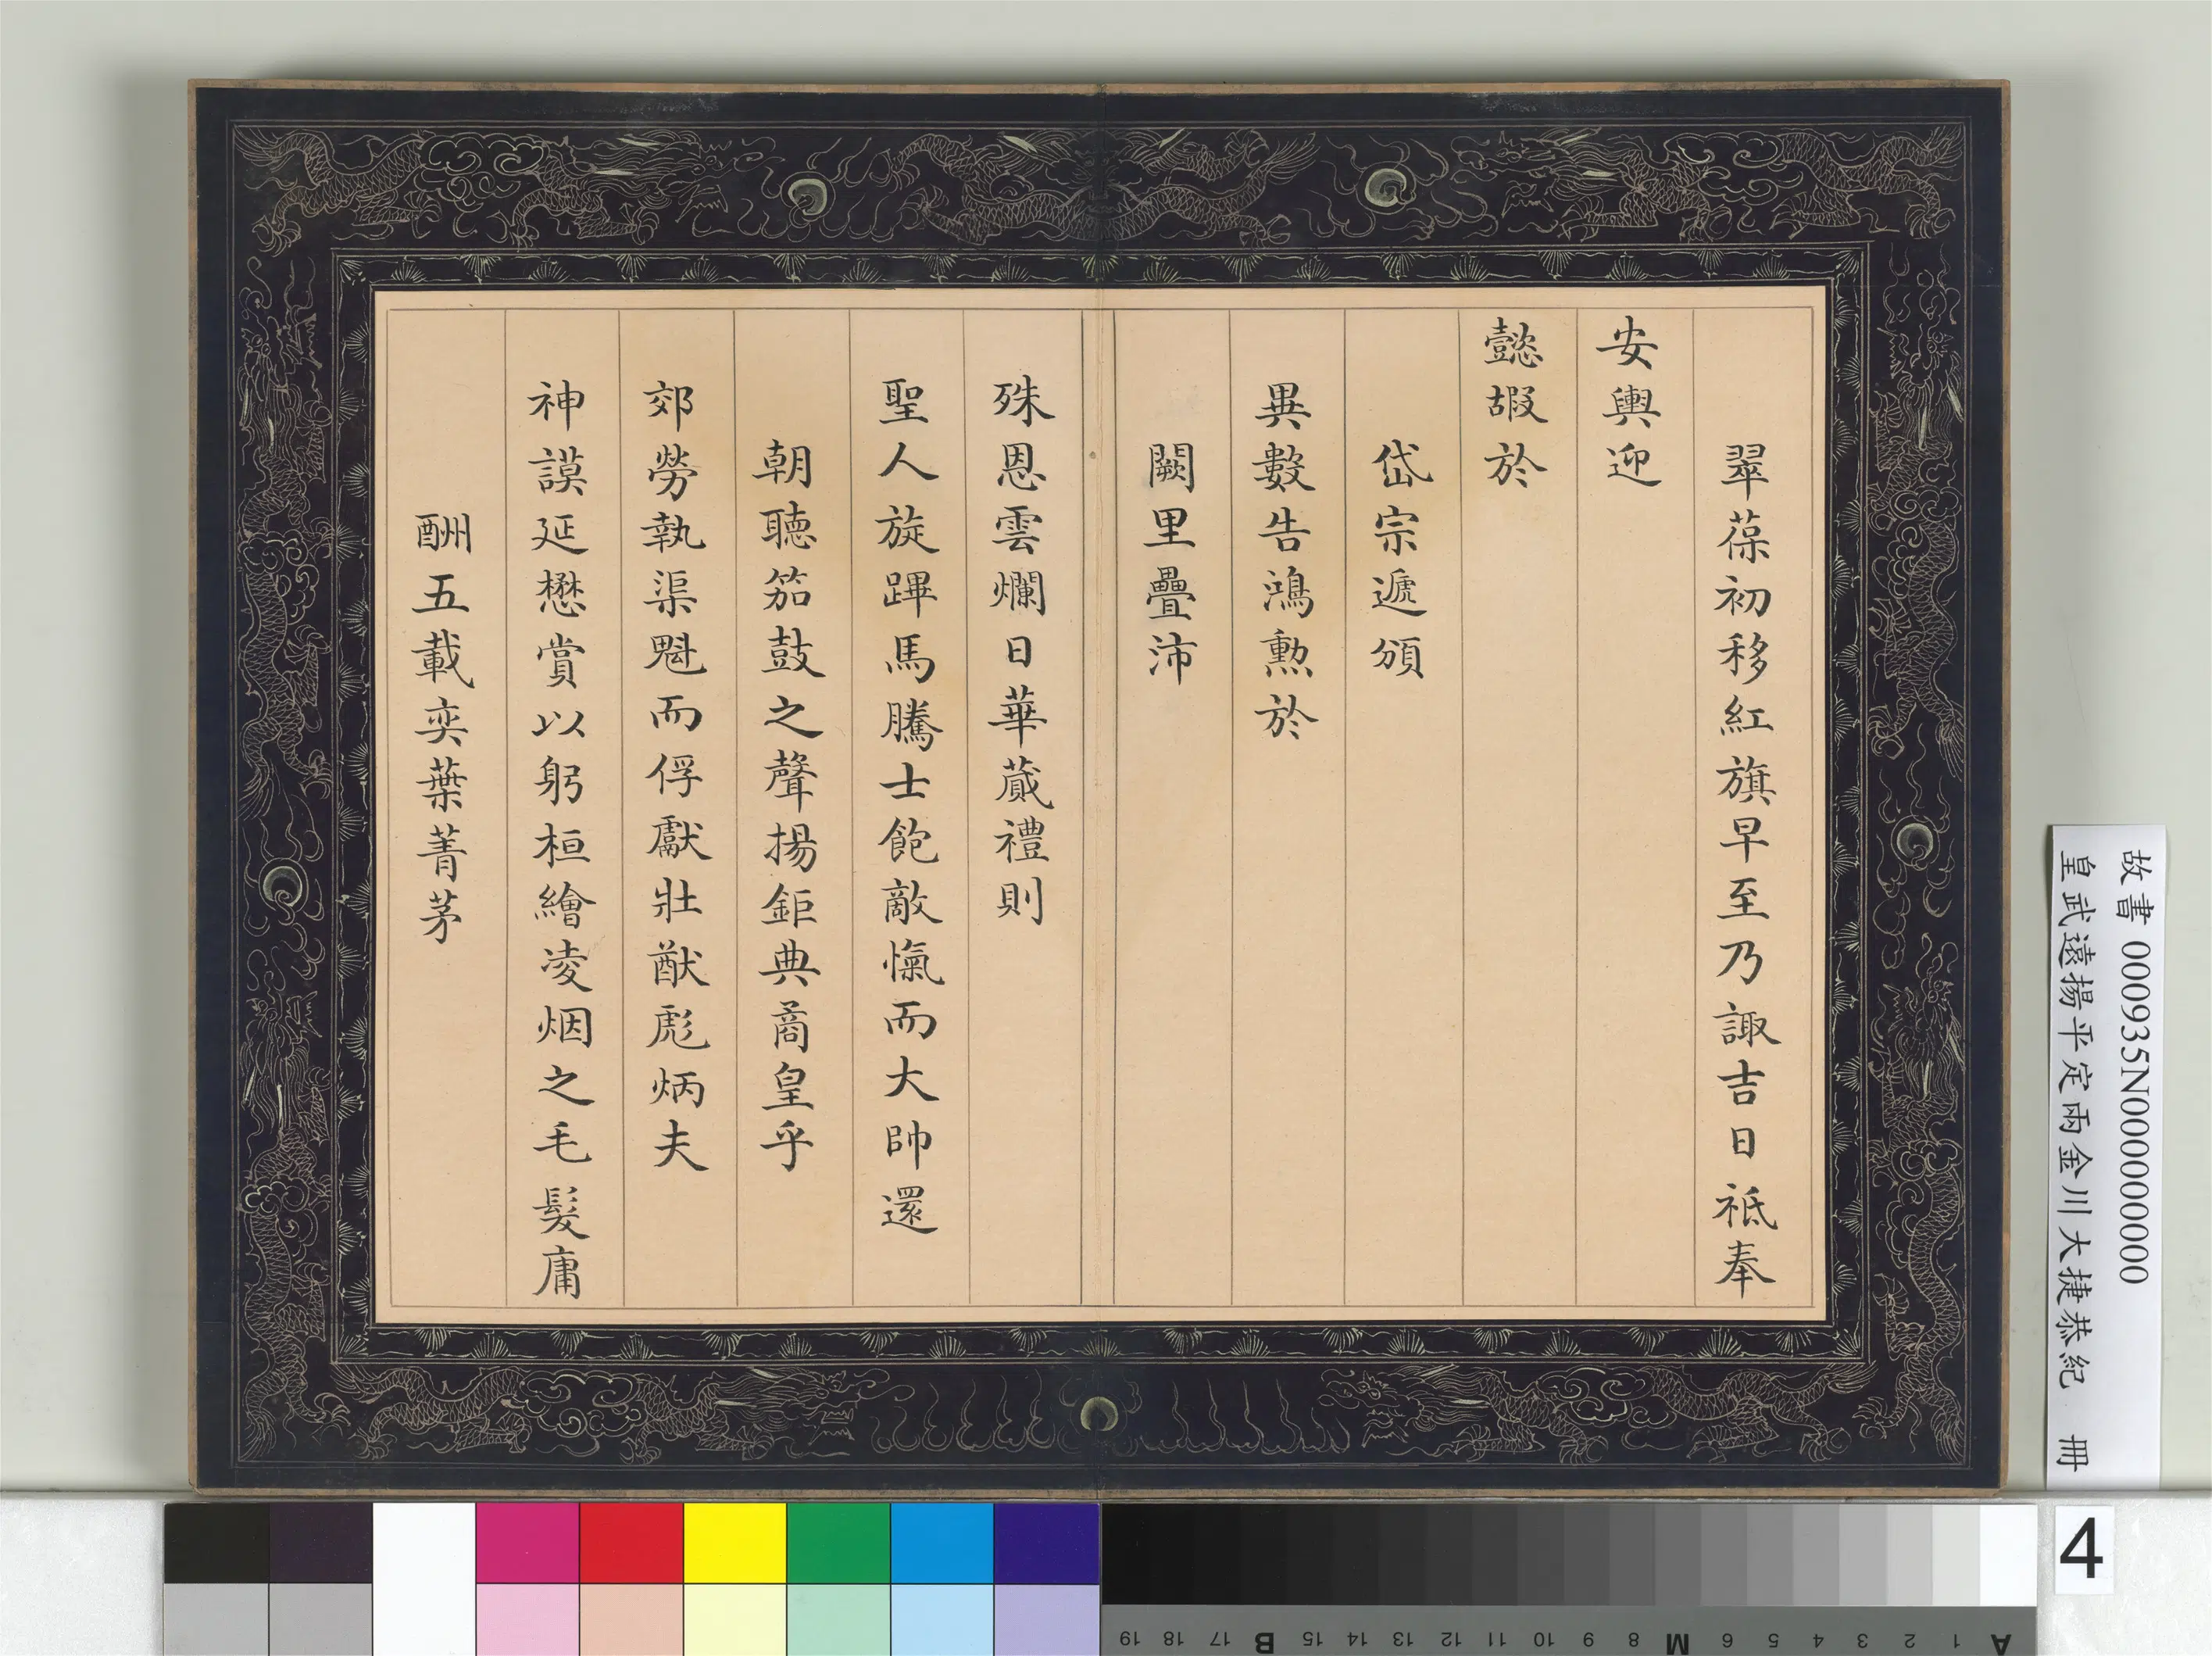 翠葆初移紅旗早至乃諏吉日祗奉
安輿迎
懿嘏於
岱宗遞頒
異數告鴻勲於
闕里疊沛
殊恩雲爛日華蕆禮則
聖人旋蹕馬騰士飽敵愾而大帥還
朝聽笳鼓之聲揚鉅典矞皇乎
郊勞執渠魁而俘獻壯猷彪炳夫
神謨延懋賞以躬桓繪凌烟之毛髮庸
酬五載奕葉菁茅
故書 000935N000000000
皇武遠揚平定兩金川大捷恭紀 冊
4
A 1 2 3 4 5 6 M 8 9 10 11 12 13 14 15 B 17 18 19